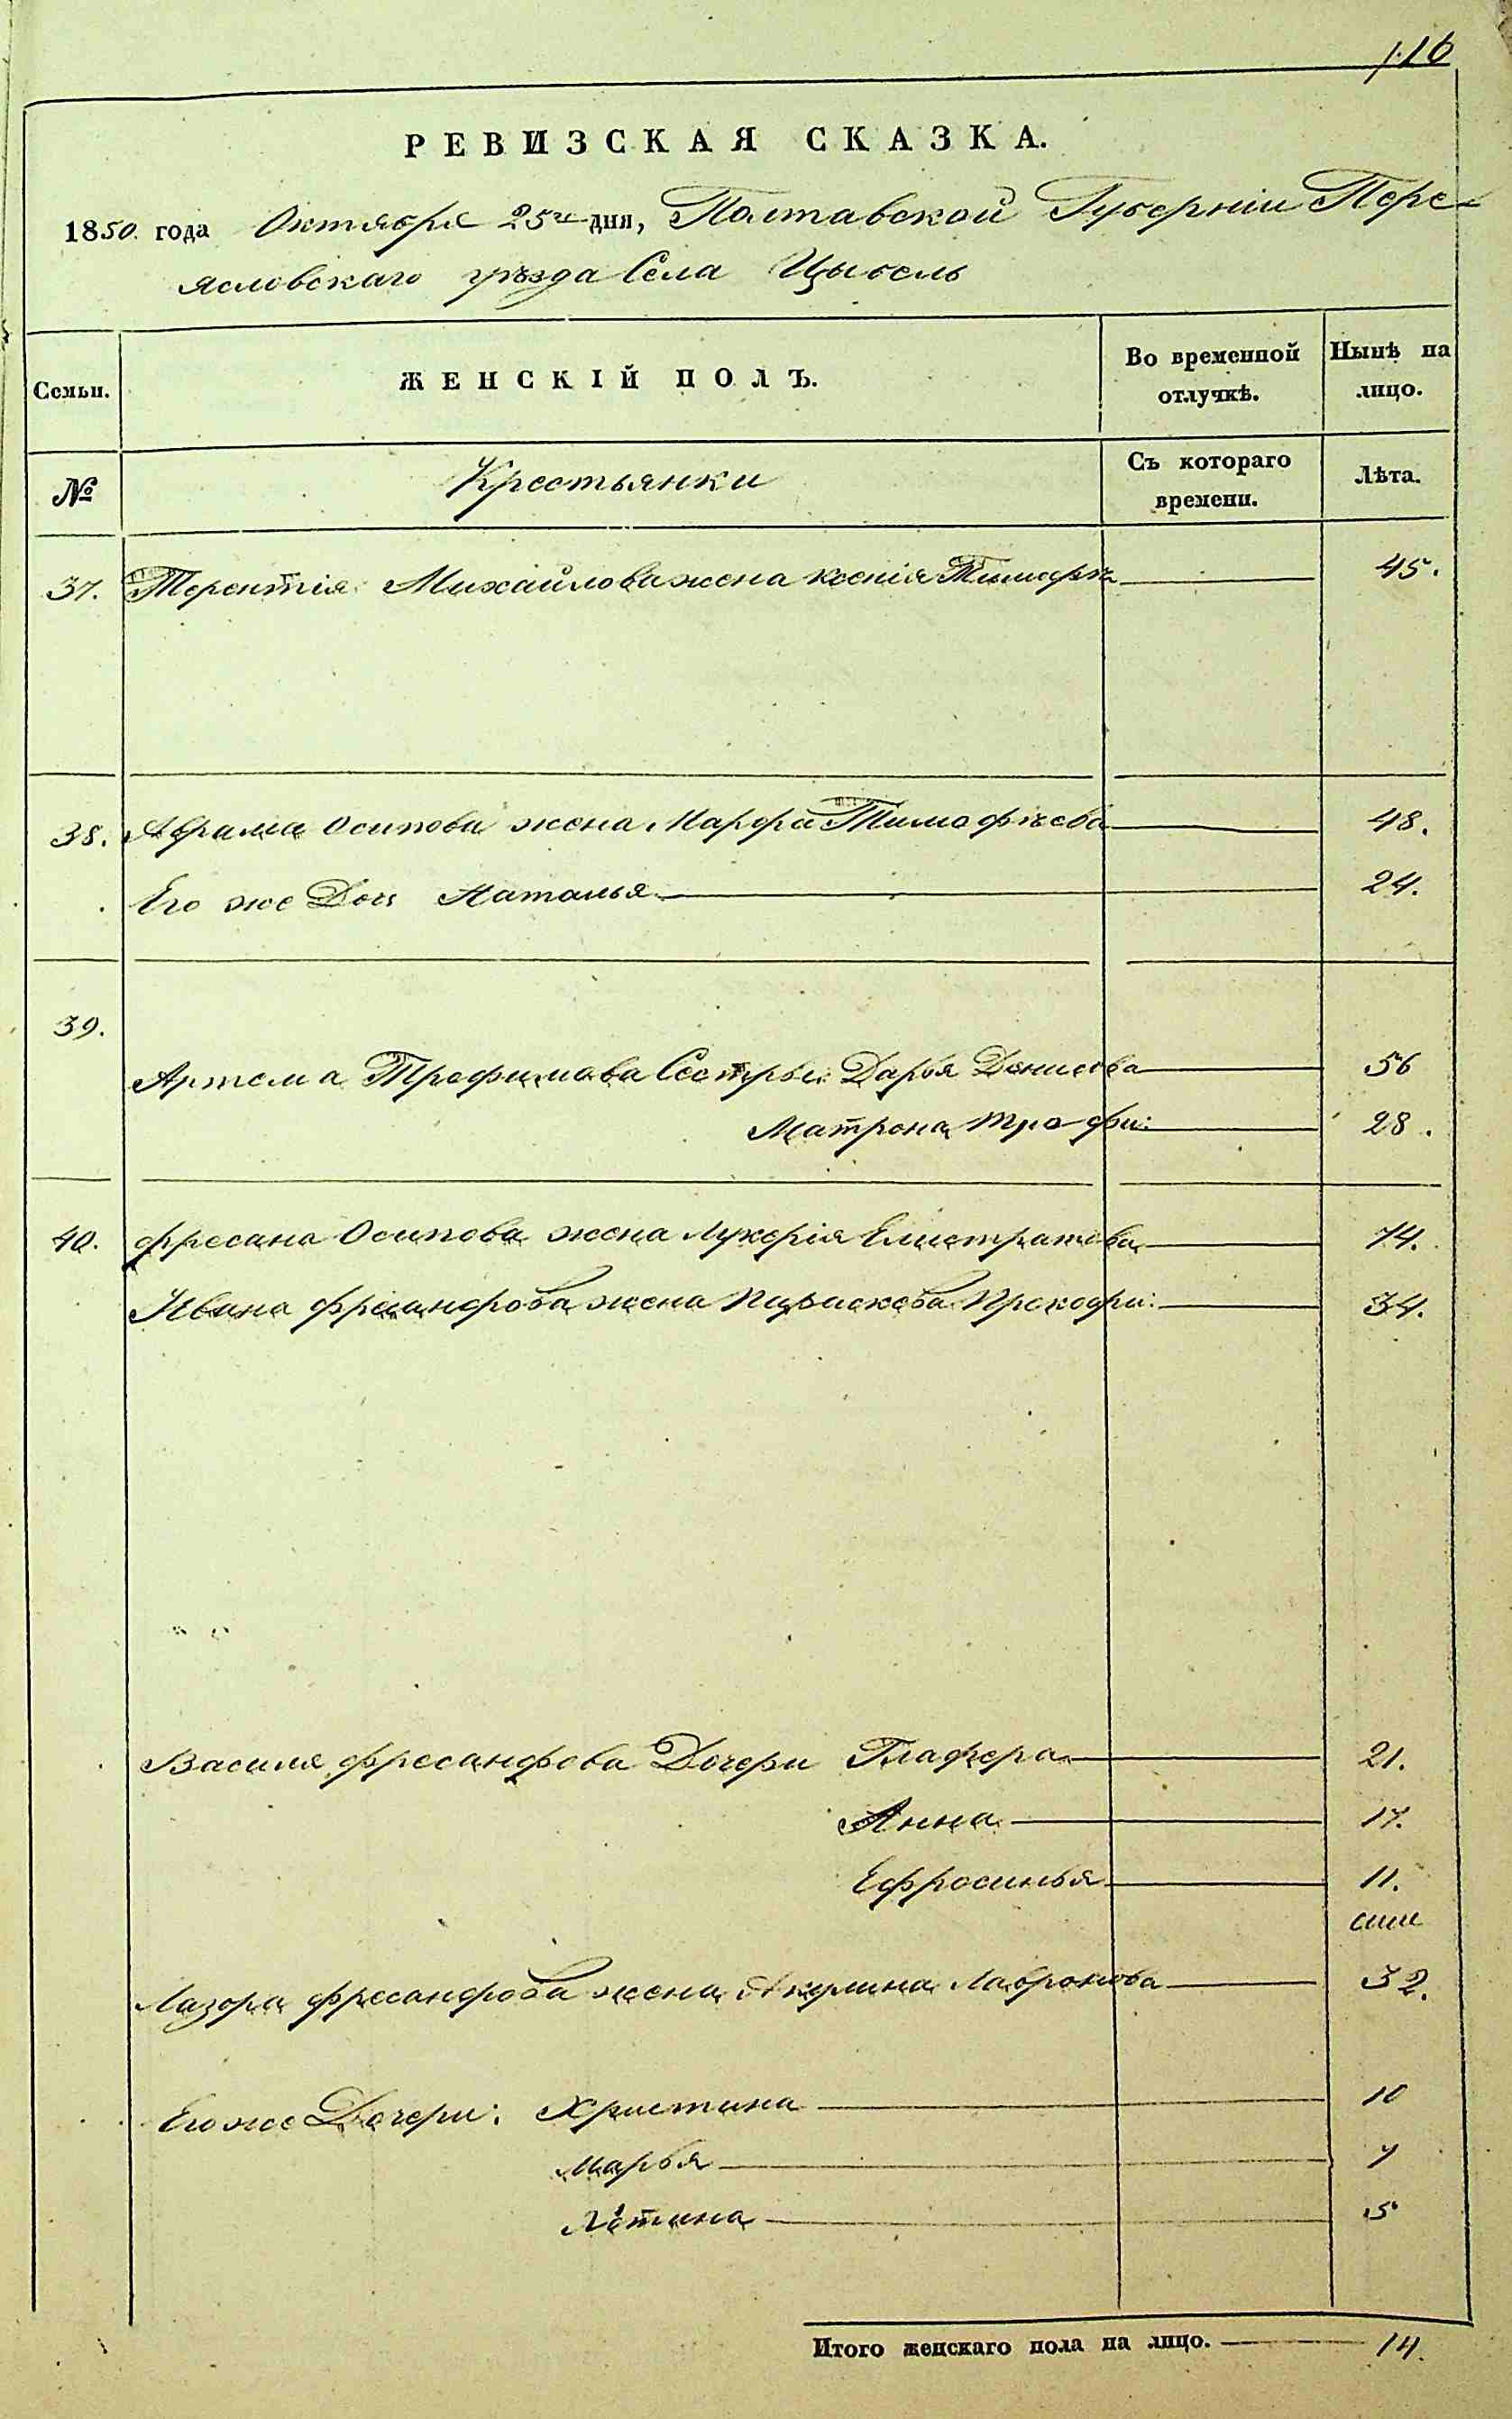 116
РЕВИЗСКАЯ СКАЗКА.
1850. года Октября 25го дня, Полтавской Губерніи Пере-
ясловскаго уѣзда Села Цыбель
Семьи. ЖЕНСКІЙ ПОЛЪ. Во временной отлучкѣ. Нынѣ на лицо.
№ Крестьянки Съ котораго времени. Лѣта.
37. Терентія Михайлова жена Ксенія 45.
38. Аврама Осипова жена Марфа Тимофѣева 48.
Его же Дочь Наталья 24.
39.
Артема Трофимова Сестры: Дарья Денисова 56
Матрона Трофи: 28.
40. Фресана Осипова жена Лукерія Елистратова 74.
Ивана жена Параскева Прокофи: 34.
Василя Фресанфова Дочери Глафера 21.
Анна 17.
Ефросинья 11.
Лазора Фресанфова жена Акулина 32.
Его же Дочери: Христина 10
Марья 7
5
Итого женскаго пола на лицо. 14.